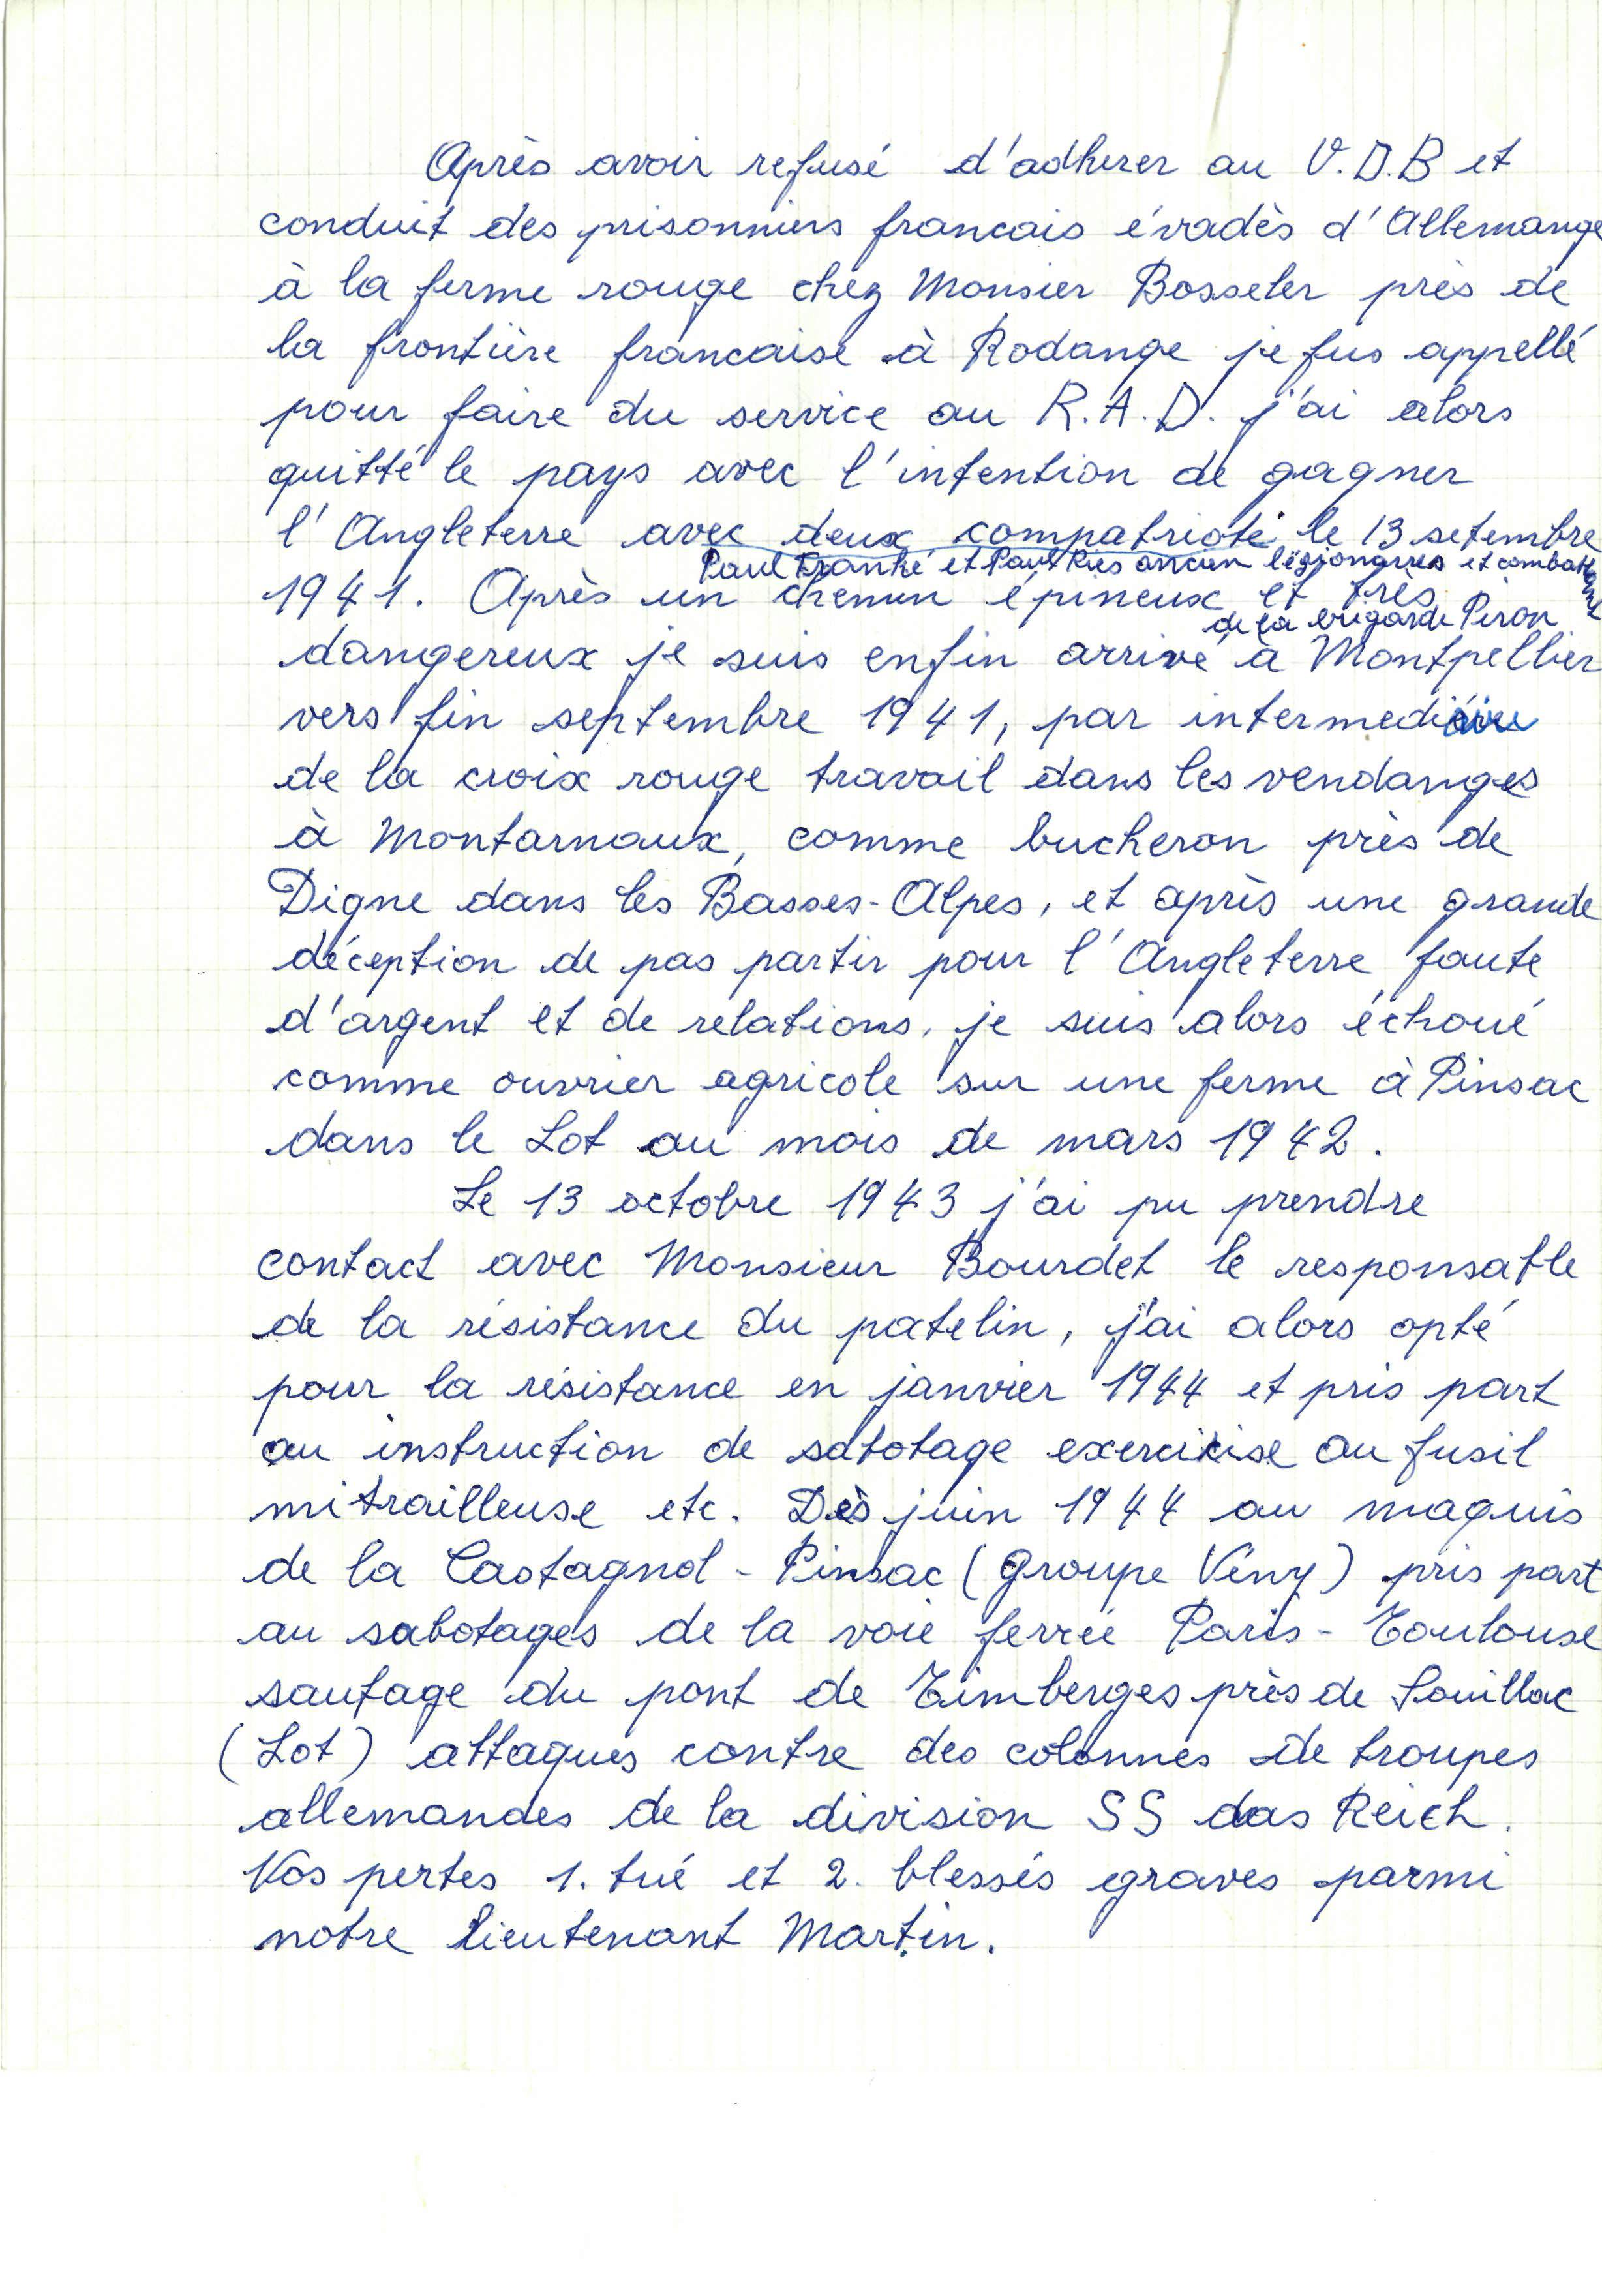 Après avoir refusé d'adherer au V.D.B et
conduit des prisonniers francais évadès d'Allemange
à la ferme rouge chez Monsier Bosseler près de
la frontière francaise à Rodange je fus appellé
pour faire du service au R.A.D. j'ai alors
quitté le pays avec l'intention de gagner
l'Angleterre avec deux compatriote le 13 setembre
Paul Franké et Paul Ries ancien légionaires et combattant
1941. Après un chemin épineux et très
de la brigarde Piron
dangereux je suis enfin arrivé à Montpellier
vers fin septembre 1941, par intermediaire
de la croix rouge travail dans les vendanges
à Montarnaux, comme bucheron près de
Digne dans les Basses-Alpes, et après une grande
déception de pas partir pour l'Angleterre faute
d'argent et de relations, je suis alors échoué
comme ouvrier agricole sur une ferme à Pinsac
dans le Lot au mois de mars 1942.
Le 13 octobre 1943 j'ai pu prendre
contact avec Monsieur Bourdet le responsable
de la résistance du patelin, j'ai alors opté
pour la résistance en janvier 1944 et pris part
au instruction de sabotage au fusil
mitrailleuse etc. Dès juin 1944 au maquis
de la Castagnol - Pinsac (groupe Vény) pris part
au sabotages de la voie ferrée Paris - Toulouse
sautage du pont de Timberges près de Souillac
(Lot) attaques contre des colonnes de troupes
allemandes de la division SS das Reich.
Nos pertes 1. tué et 2. blessés graves parmi
notre lieutenant Martin.